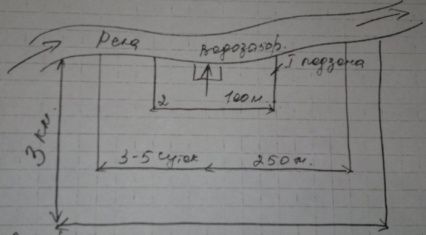 Река
водозабор.
I подзона
2
100м.
3 км.
3-5 суток
250м.